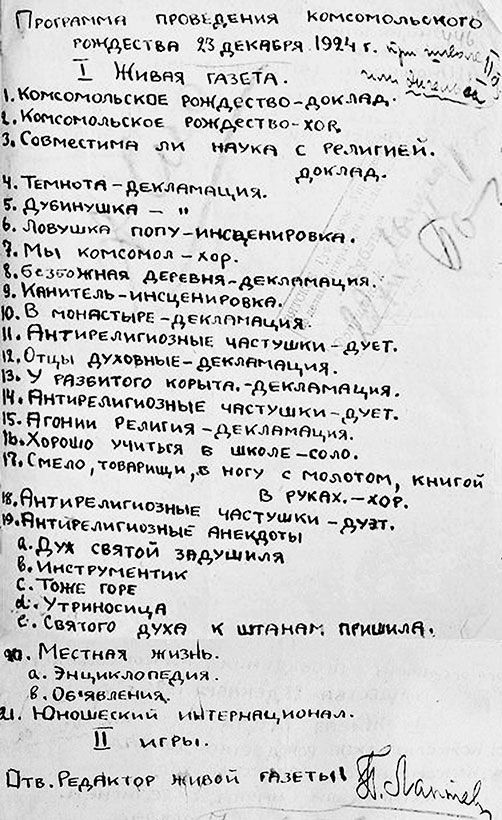 Программа проведения комсомольского
рождества 23 декабря 1924 г. при школе
I Живая газета.
1. Комсомольское рождество-доклад.
2. Комсомольское рождество-хор.
3. Совместима ли наука с религией.
доклад.
4. Темнота-декламация.
5. Дубинушка – "
6. Ловушка попу-инсценировка.
7. Мы комсомол-хор.
8. безбожная деревня-декламация.
9. Канитель-инсценировка.
10. В монастыре-декламация.
11. Антирелигиозные частушки-дует.
12. Отцы духовные-декламация.
13. У разбитого корыта.-декламация.
14. Антирелигиозные частушки-дует.
15. Агонии религия-декламация.
16. Хорошо учиться в школе-соло.
17. Смело, товарищи, в ногу с молотом, книгой
в руках.-хор.
18. Антирелигиозные частушки-дуэт.
19. Антирелигиозные анекдоты
a. Дух святой задушила
b. Инструментик
c. Тоже горе
d. Утриносица
e. Святого духа к штанам пришила.
20. Местная жизнь.
а. Энциклопедия.
в. Обявления.
21. Юношеский интернационал.
II игры.
Отв. Редактор живой газеты П. Лаптев